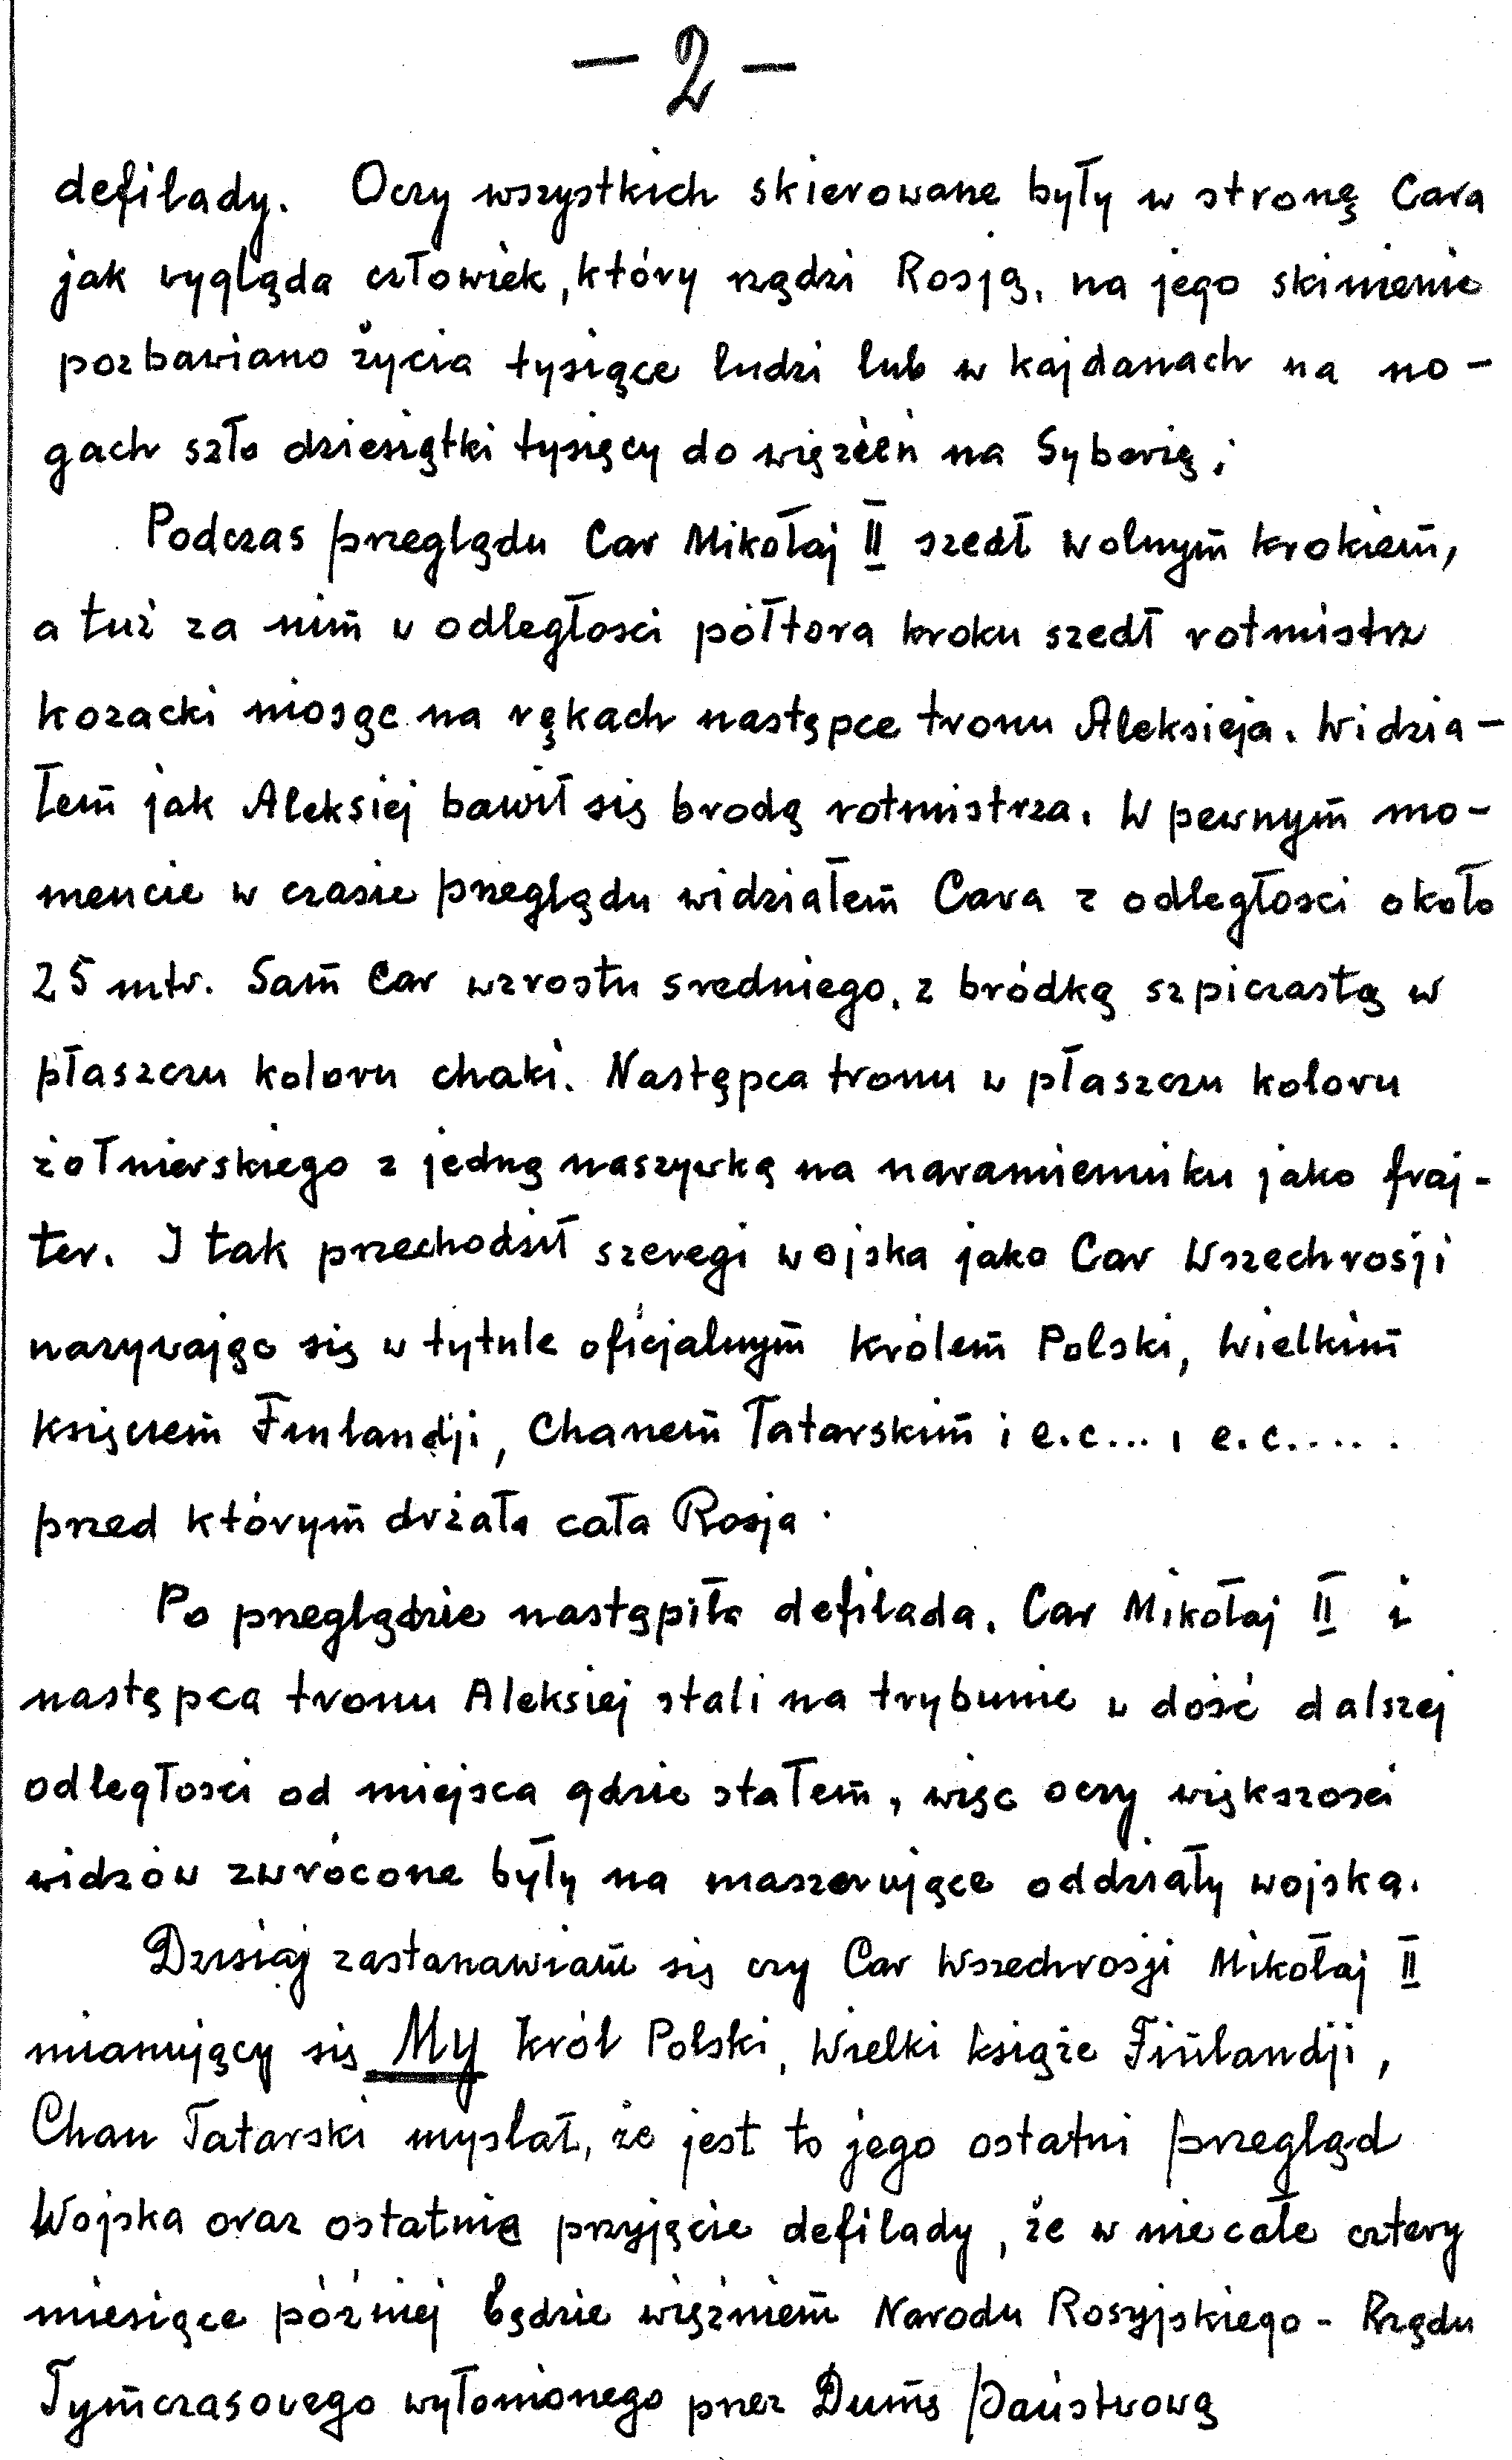 — 2 —
defilady. Oczy wszystkich skierowane były w stronę Cara
jak wygląda człowiek, który rządzi Rosją, na jego skinienie
pozbawiano życia tysiące ludzi lub w kajdanach na no-
gach szło dziesiątki tysięcy do więzień na Syberię;
Podczas przeglądu Car Mikołaj II szedł wolnym krokiem,
a tuż za nim w odległosci półtora kroku szedł rotmistrz
kozacki niosąc na rękach następce tronu Aleksieja. Widzia-
łem jak Aleksiej bawił się brodą rotmistrza. W pewnym mo-
mencie w czasie przeglądu widziałem Cara z odległosci około
25 mtr. Sam Car wzrostu sredniego, z bródką szpiczastą w
płaszczu koloru chaki. Następca tronu w płaszczu koloru
żołnierskiego z jedną naszywką na naramienniku jako fraj-
ter. I tak przechodził szeregi wojska jako Car Wszechrosji
nazywając się w tytule oficjalnym Królem Polski, Wielkim
księciem Finlandji, Chanem Tatarskim i e.c... i e.c.....
przed którym drżała cała Rosja.
Po przeglądzie nastąpiła defilada. Car Mikołaj II i
następca tronu Aleksiej stali na trybunie w dość dalszej
odległosci od miejsca gdzie stałem, więc oczy większosci
widzów zwrócone były na maszerujące oddziały wojska.
Dzisiaj zastanawiam się czy Car Wszechrosji Mikołaj II
mianujący się My Król Polski, Wielki książe Finlandji,
Chan Tatarski myslał, że jest to jego ostatni przegląd
Wojska oraz ostatnie przyjęcie defilady, że w niecałe cztery
miesiące później będzie więźniem Narodu Rosyjskiego - Rządu
Tymczasowego wyłonionego przez Dumę Państwową